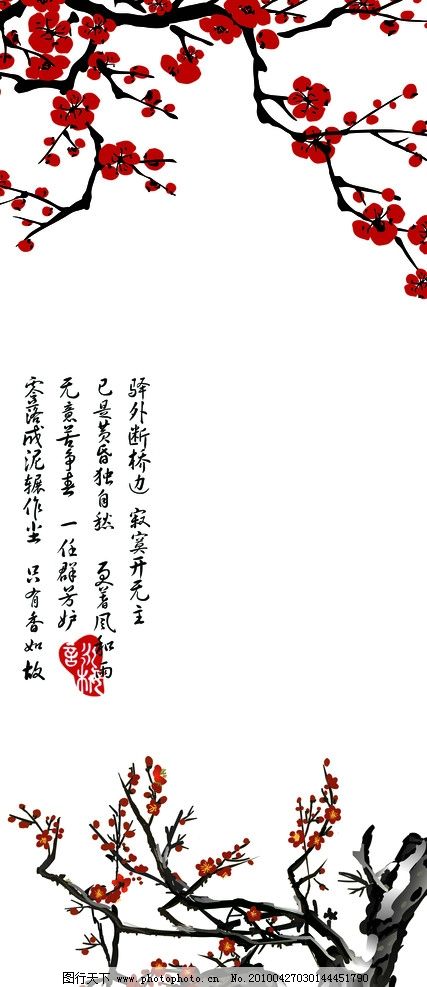 驿外断桥边 寂寞开无主
已是黄昏独自愁 更着风和雨
无意苦争春 一任群芳妒
零落成泥辗作尘 只有香如故
图行天下 PHOTOPHOTO.CN No.20100427030144451790